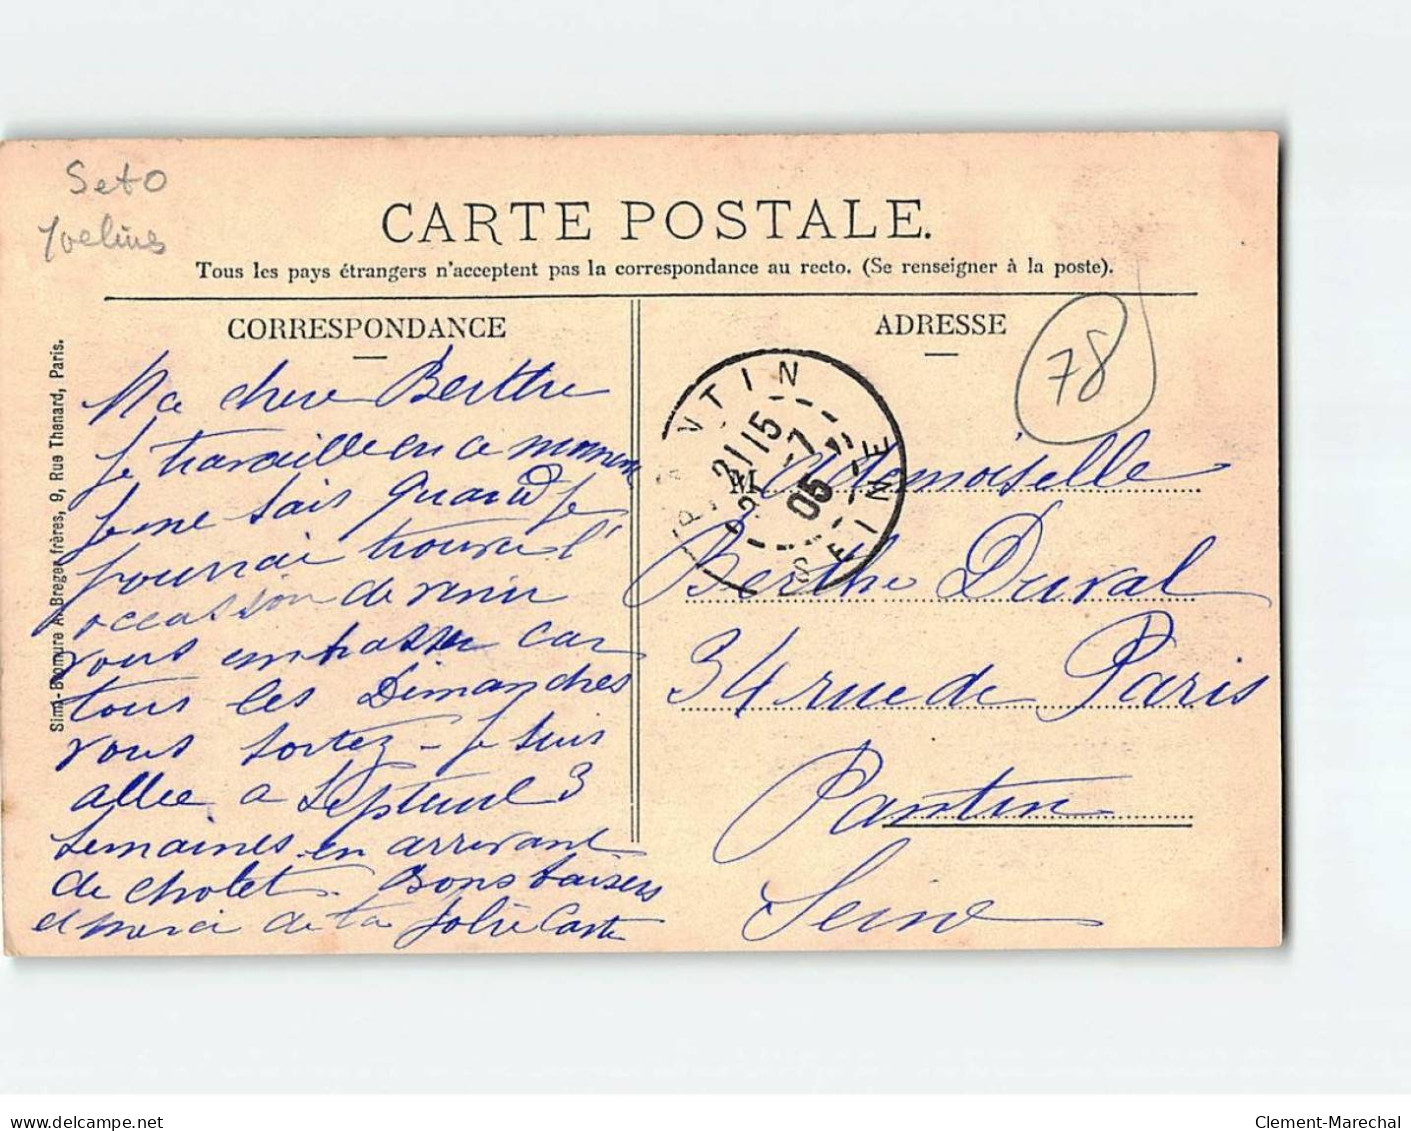 Set O
Yvelines
CARTE POSTALE.
Tous les pays étrangers n'acceptent pas la correspondance au recto. (Se renseigner à la poste).
CORRESPONDANCE
Ma chere Berthe
Je travaille en ce moment
Je ne sais quand je
pourrai trouver l'
occassion de venir
vous embrasser car
tous les Dimanches
vous sortez - Je suis
allee a Septeuil 3
semaines en arrivant
de Cholet. Bons baisers
et merci de ta Jolie Carte
Simi-Bromure A. Breger frères, 9, Rue Thenard, Paris.
ADRESSE
78
PANTIN
21 15
3 -7
05
SEINE
Mademoiselle
Berthe Duval
34 rue de Paris
Pantin
Seine
www.delcampe.net
Clement-Marechal